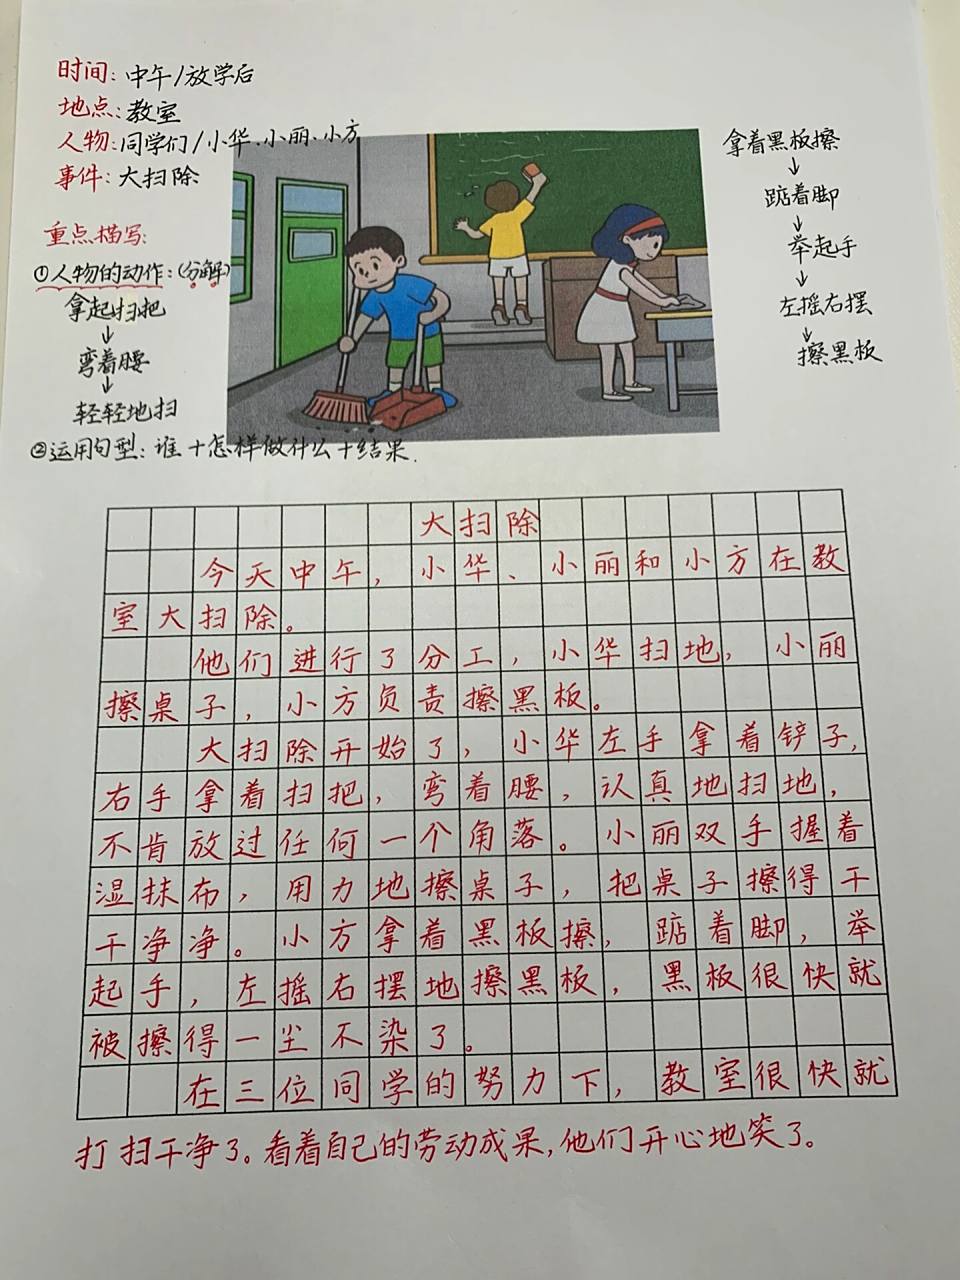 时间：中午/放学后
地点：教室
人物：同学们/小华、小丽、小方
事件：大扫除
重点描写：
①人物的动作：(分解)
拿起扫把
↓
弯着腰
↓
轻轻地扫
②运用句型：谁+怎样做什么+结果.
拿着黑板擦
↓
踮着脚
↓
举起手
↓
左摇右摆
↓
擦黑板
大扫除
今天中午，小华、小丽和小方在教
室大扫除。
他们进行了分工，小华扫地，小丽
擦桌子，小方负责擦黑板。
大扫除开始了，小华左手拿着铲子，
右手拿着扫把，弯着腰，认真地扫地，
不肯放过任何一个角落。小丽双手握着
湿抹布，用力地擦桌子，把桌子擦得干
干净净。小方拿着黑板擦，踮着脚，举
起手，左摇右摆地擦黑板，黑板很快就
被擦得一尘不染了。
在三位同学的努力下，教室很快就
打扫干净了。看着自己的劳动成果，他们开心地笑了。